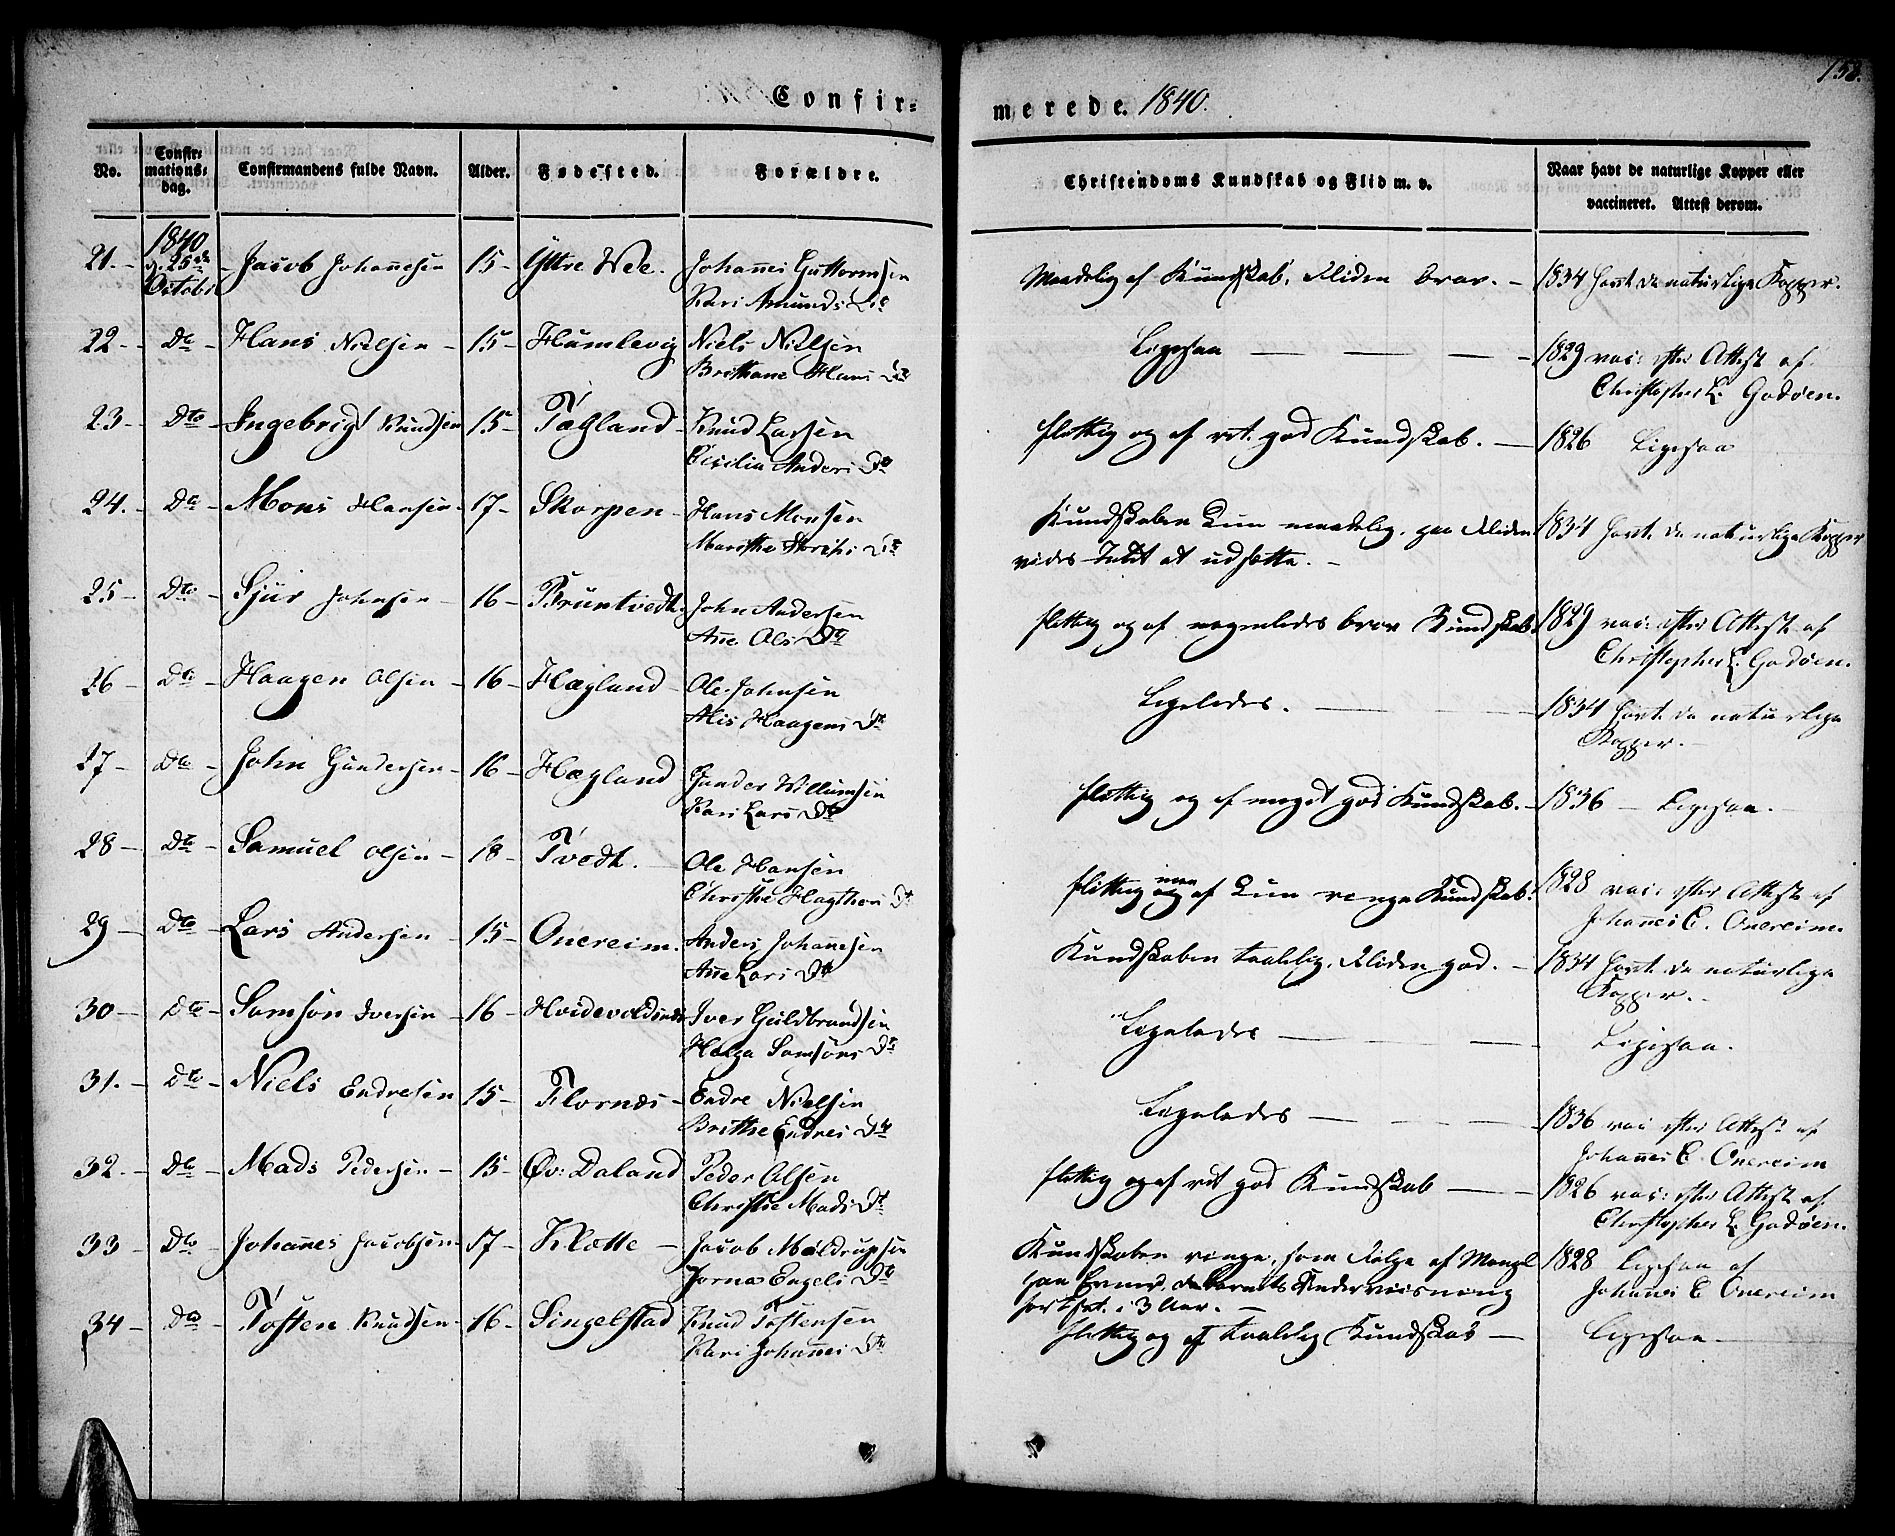 158.
Confir=
merede. 1840.
No. Confir= mations= dag. Confirmandens fulde Navn. Alder. Fødested. Forældre. Christendoms Kundskab og Flid m. v. Naar havt de naturlige Kopper eller vaccineret. Attest derom.
21. 1840 d. 25de Octobr Jacob Johannesen 15 Yttre Wee. Johannes Guttormsen Maadelig af Kundskab, Fliden brav. 1834 havt de naturlige Kopper.
Kari Amunds Dr
22 Do Hans Nielsen 15 Humlevig Niels Nielsen Ligesaa 1829 vac: efter Attest af
Brithane Hans Dr Christopher L. Godøen.
23 Dto Ingebrigt Knudsen 15 Tøgland Knud Larsen flittig og af ret god Kundskab. 1826 Ligesaa
Cicilia Anders Dr
24. Do Mons Hansen 17 Skorpen Hans Monsen Kundskaben kun maadelig, paa Fliden 1834 havt de naturlige Kopper
Marithe Dr vides Intet at udsætte.
25 Dto Sjur Johnsen 16 Bruntvedt John Andersen flittig og af nogenledes brav Kundskab 1829 vac: efter Attest af
Ane Ols Dr Christopher L. Godøen.
26 Do Haagen Olsen 16 Høgland Ole Johnsen Ligeledes. 1834 havt de naturlige
Alis Haagens Dr Kopper.
27 Do John Gundersen 16 Høgland Gunder Willumsen flittig og af meget god Kundskab. 1836 Ligesaa.
Kari Lars Dr
28 Do Samuel Olsen 18 Tvedt. Ole Hansen flittig men af kun ringe Kundskab. 1828 vac: efter Attest af
Christhe Hagthor Dr Johannes E. Onereim.
29 Do Lars Andersen 15 Onereim. Anders Johannesen Kundskaben taalelig, Fliden god. 1834 havt de naturlige
Ane Lars Dr Kopper.
30 Do Samson Iversen 16 Hvidevoldsnæs Iver Guldbrandsen Ligeledes Ligesaa.
Helga Samsons Dr
31. Dto Niels Endresen 15 Flornæs Endre Nielsen Ligeledes 1836 vac: efter Attest af
Brithe Endres Dr Johannes E. Onereim
32. Do Mads Pedersen 15 Øv: Daland Peder Olsen flittig og af ret god Kundskab 1826 vac: efter Attest af
Christhe Mads Dr Christopher L. Godøen.
33 Do Johannes Jacobsen 17 Kløtte Jacob Møldrupsen Kundskaben ringe, som Følge af Mangel 1828 Ligesaa af
Jorna Engels Dr paa Evner, Undervisning Johannes E Onereim
i 3 Aar.
34 Do Tosten Knudsen 16 Singelstad Knud Tostensen flittig og af taalelig Kundskab Ligesaa
Kari Johannes Dr